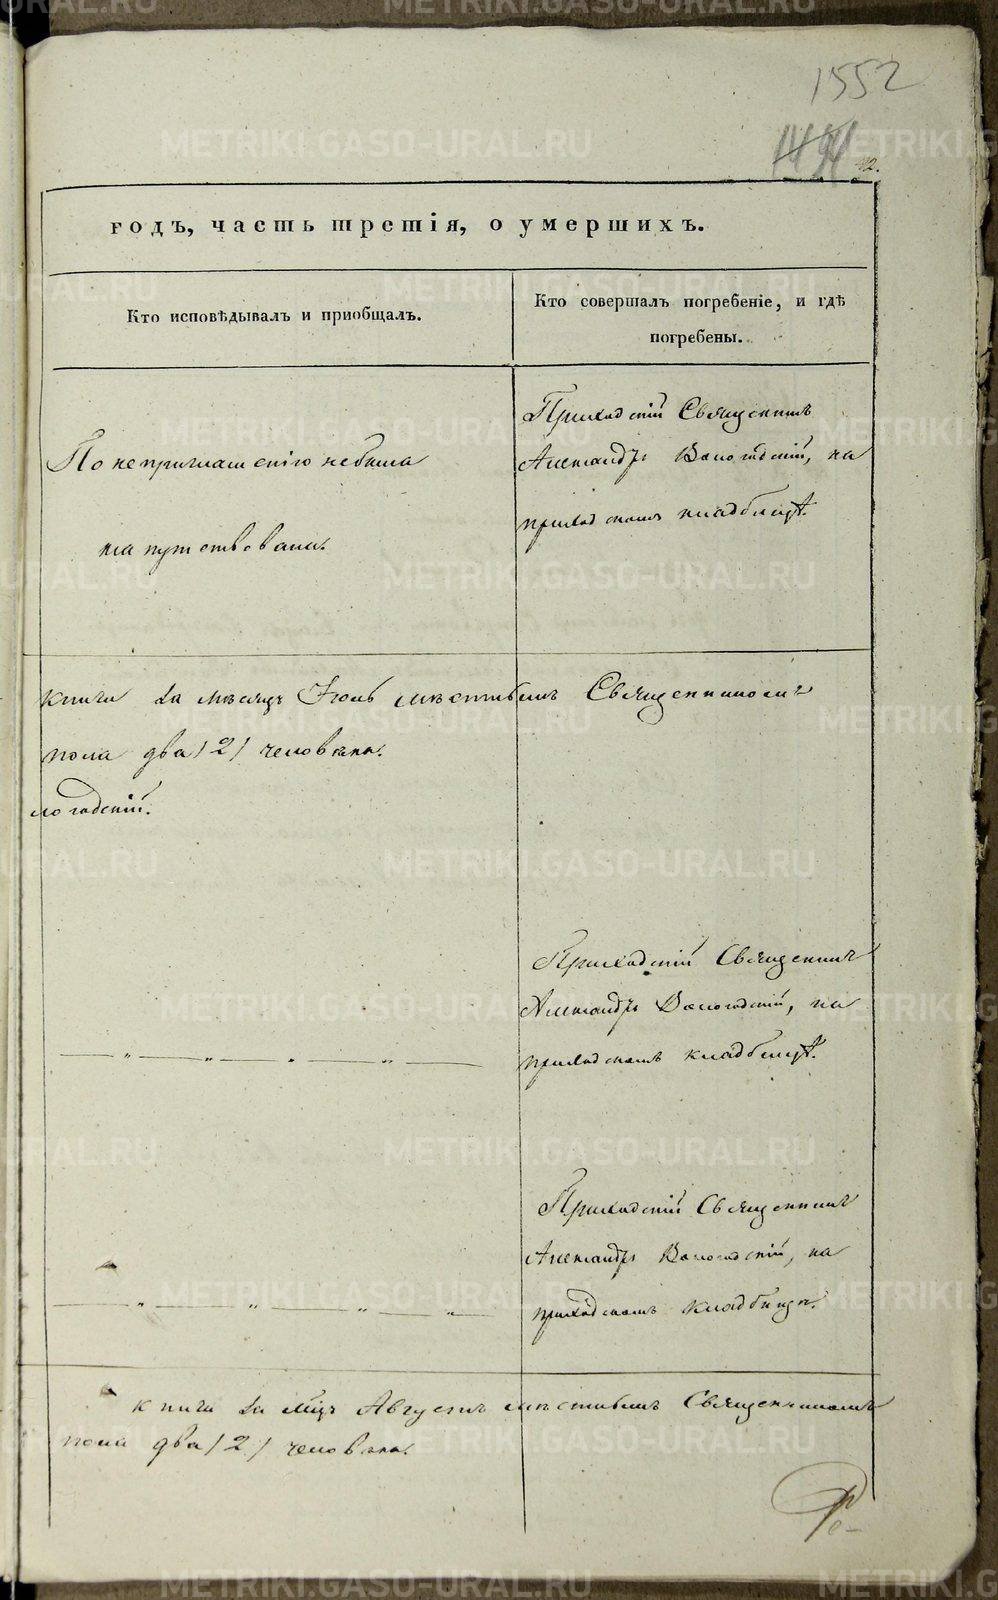 1552
1491
12.
годъ, часть третія, о умершихъ.
Кто исповѣдывалъ и пріобщалъ.
Кто совершалъ погребеніе, и гдѣ
погребены.
По неприглашенію небыла
напутствована.
Приходскій Священникъ
Александръ Вологодскій, на
приходскомъ кладбищѣ.
книги за мѣсяцъ Іюль мѣстнымъ Священникомъ
пола два /2/ человѣка.
логодскій.
Приходскій Священникъ
Александръ Вологодскій, на
приходскомъ кладбищѣ.
Приходскій Священникъ
Александръ Вологодскій, на
приходскомъ кладбищѣ.
книги за мцъ Августъ мѣстнымъ Священникомъ
пола два /2/ человѣка.
METRIKI.GASO-URAL.RU